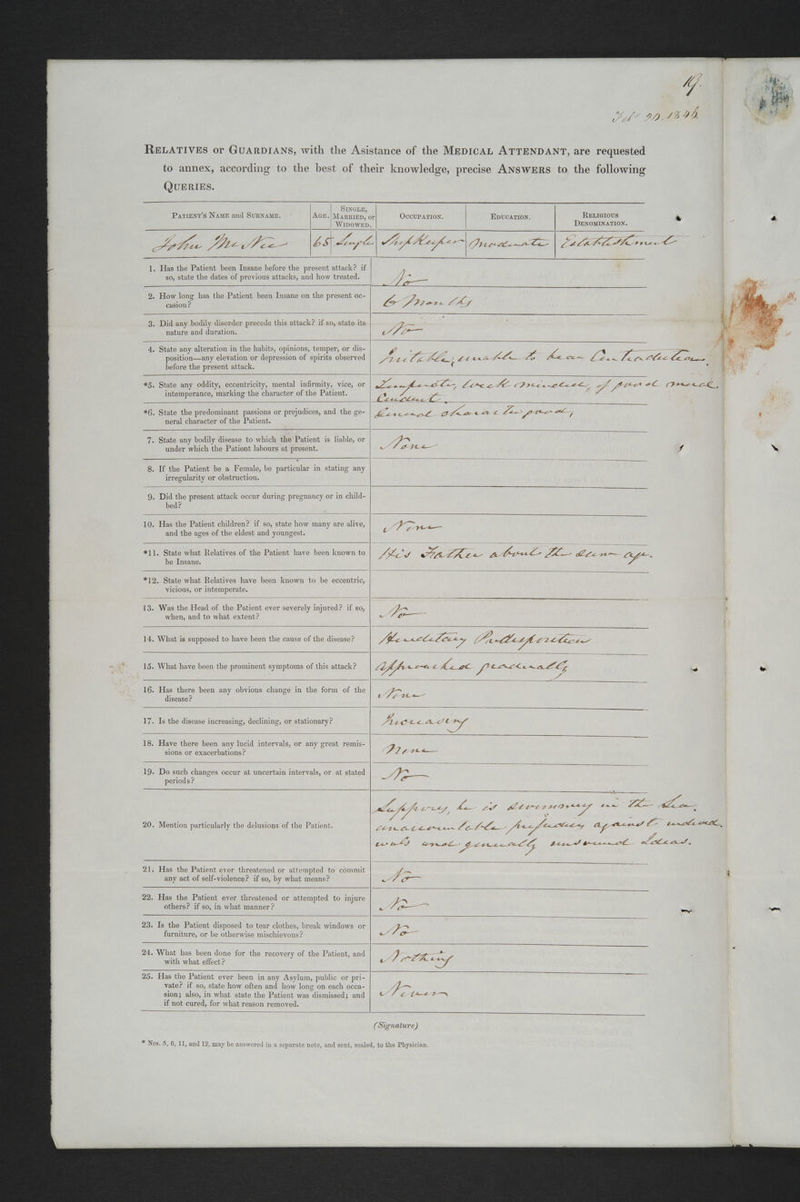 19.
Feb 20 1846
RELATIVES or GUARDIANS, with the Asistance of the MEDICAL ATTENDANT, are requested
to annex, according to the best of their knowledge, precise ANSWERS to the following
QUERIES.
PATIENT'S NAME and SURNAME. AGE. SINGLE, MARRIED, or WIDOWED. OCCUPATION. EDUCATION. RELIGIOUS DENOMINATION.
John McNee 65 Single Shopkeeper Moderate Establishment
1. Has the Patient been Insane before the present attack? if
so, state the dates of previous attacks, and how treated.
No
2. How long has the Patient been Insane on the present oc-
casion?
6 Months
3. Did any bodily disorder precede this attack? if so, state its
nature and duration.
No
4. State any alteration in the habits, opinions, temper, or dis-
position—any elevation or depression of spirits observed
before the present attack.
Irritable, unable to bear Contradiction
*5. State any oddity, eccentricity, mental infirmity, vice, or
intemperance, marking the character of the Patient.
Temperate, weak minded, of good moral
Conduct.
*6. State the predominant passions or prejudices, and the ge-
neral character of the Patient.
General character good,
7. State any bodily disease to which the Patient is liable, or
under which the Patient labours at present.
None
8. If the Patient be a Female, be particular in stating any
irregularity or obstruction.
9. Did the present attack occur during pregnancy or in child-
bed?
10. Has the Patient children? if so, state how many are alive,
and the ages of the eldest and youngest.
None
*11. State what Relatives of the Patient have been known to
be Insane.
His Father about the same age.
*12. State what Relatives have been known to be eccentric,
vicious, or intemperate.
13. Was the Head of the Patient ever severely injured? if so,
when, and to what extent?
No
14. What is supposed to have been the cause of the disease?
Hereditary Predisposition
15. What have been the prominent symptoms of this attack?
approached gradually
16. Has there been any obvious change in the form of the
disease?
None
17. Is the disease increasing, declining, or stationary?
Increasing
18. Have there been any lucid intervals, or any great remis-
sions or exacerbations?
None
19. Do such changes occur at uncertain intervals, or at stated
periods?
No
20. Mention particularly the delusions of the Patient.
Supposes he is swimming in the Sea,
unaccountable prejudices against individ
uals and generally unsound Ideas.
21. Has the Patient ever threatened or attempted to commit
any act of self-violence? if so, by what means?
No
22. Has the Patient ever threatened or attempted to injure
others? if so, in what manner?
No
23. Is the Patient disposed to tear clothes, break windows or
furniture, or be otherwise mischievous?
No
24. What has been done for the recovery of the Patient, and
with what effect?
Nothing
25. Has the Patient ever been in any Asylum, public or pri-
vate? if so, state how often and how long on each occa-
sion; also, in what state the Patient was dismissed; and
if not cured, for what reason removed.
Never
(Signature)
* Nos. 5, 6, 11, and 12, may be answered in a separate note, and sent, sealed, to the Physician.